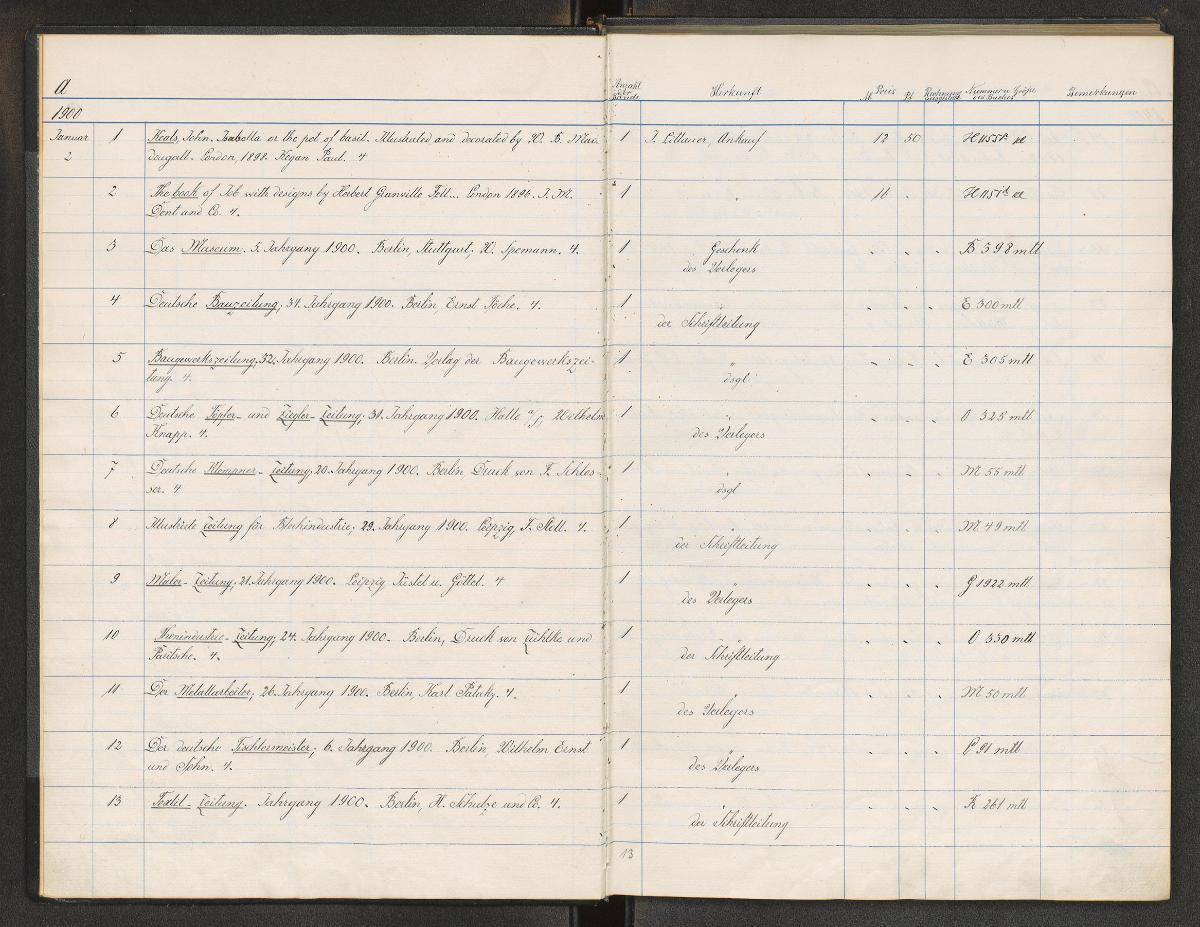 a
Anzahl der Bände Herkunft Preis M. Pf. Rechnung Nummer u. Größe des Buches Bemerkungen
1900
Januar 1 Keats, John. Isabella or the pot of basil. Illustrated and decorated by W. B. Mac- 1 J. Littauer, Ankauf 12 50 H 1155
2 dougall. London, 1898. Kegan Paul. 4
2 The book of Job with designs by Herbert Granville Fell... London 1896. J. M. 1 " 16 . H 1151
Dent and Co. 4.
3 Das Museum. 5. Jahrgang 1900. Berlin, Stuttgart; W. Spemann. 4. 1 Geschenk . . . B 598 mtl
des Verlegers
4 Deutsche Bauzeitung; 34. Jahrgang 1900. Berlin, Ernst Toeche. 4. 1 " . . . E 300 mtl
der Schriftleitung
5 Baugewerkszeitung; 32. Jahrgang 1900. Berlin. Verlag der Baugewerkszei- 1 " . . . E 305 mtl
tung. 4. dsgl
6 Deutsche Töpfer- und Ziegler-Zeitung; 31. Jahrgang 1900. Halle a/S, Wilhelm 1 " . . . O 325 mtl
Knapp. 4. des Verlegers
7 Deutsche Klempner-Zeitung; 20. Jahrgang 1900. Berlin, Druck von F. Schlos- 1 " . . . M 55 mtl
ser. 4 dsgl
8 Illustrirte Zeitung für Blechindustrie; 29. Jahrgang 1900. Leipzig, F. Stoll. 4. 1 " . . M 49 mtl
der Schriftleitung
9 Maler-Zeitung; 21. Jahrgang 1900. Leipzig, Jüstel u. Göttel. 4 1 " . . . G 1922 mtl
des Verlegers
10 Thonindustrie-Zeitung; 24. Jahrgang 1900. Berlin, Druck von Zuhlke und 1 " . . . O 330 mtl
4. der Schriftleitung
11 Der Metallarbeiter; 26. Jahrgang 1900. Berlin, Karl Pataky. 4. 1 " . . . M 50 mtl
des Verlegers
12 Der deutsche Tischlermeister; 6. Jahrgang 1900. Berlin, Wilhelm Ernst 1 " . . . P 91 mtl
und Sohn. 4. des Verlegers
13 Textil-Zeitung. Jahrgang 1900. Berlin, H. Schulze und Co. 4. 1 " . . . K 261 mtl
der Schriftleitung
13